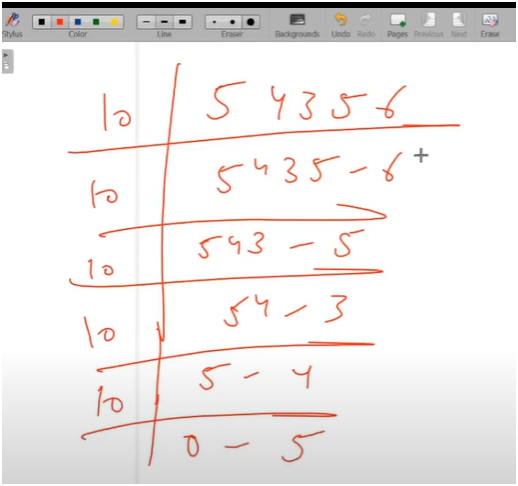 Stylus Color Line Eraser Backgrounds Undo Redo Pages Previous Next Erase
10 54356
10 5435 - 6
10 543 - 5
10 54 - 3
10 5 - 4
0 - 5